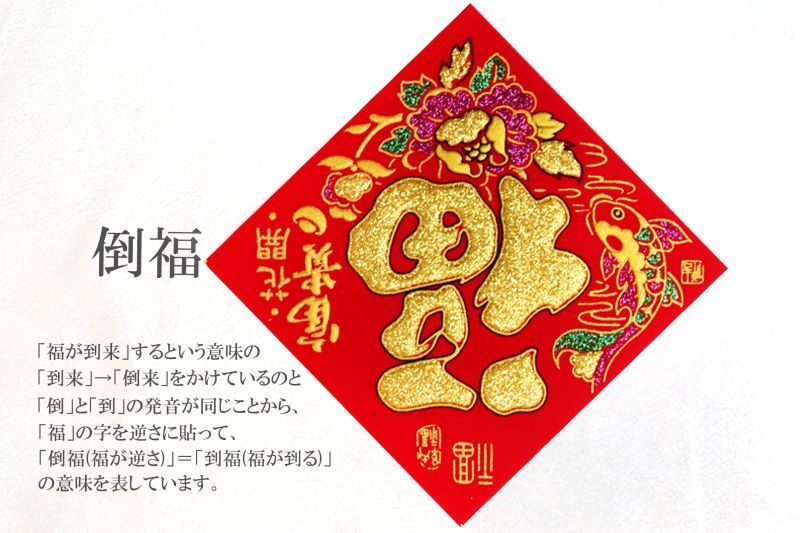 倒福
「福が到来」するという意味の
「到来」→「倒来」をかけているのと
「倒」と「到」の発音が同じことから、
「福」の字を逆さに貼って、
「倒福(福が逆さ)」＝「到福(福が到る)」
の意味を表しています。
福
花開
富貴